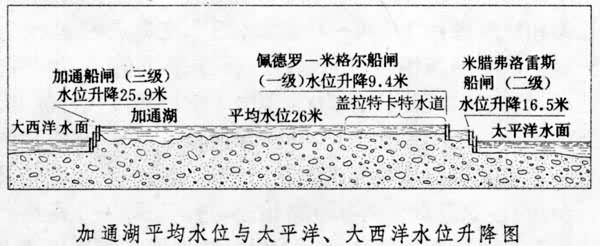 加通船闸（三级）
水位升降25.9米
佩德罗－米格尔船闸
(一级)水位升降9.4米
米腊弗洛雷斯
船闸（二级）
水位升降16.5米
盖拉特卡特水道
大西洋水面
加通湖
平均水位26米
太平洋水面
加通湖平均水位与太平洋、大西洋水位升降图